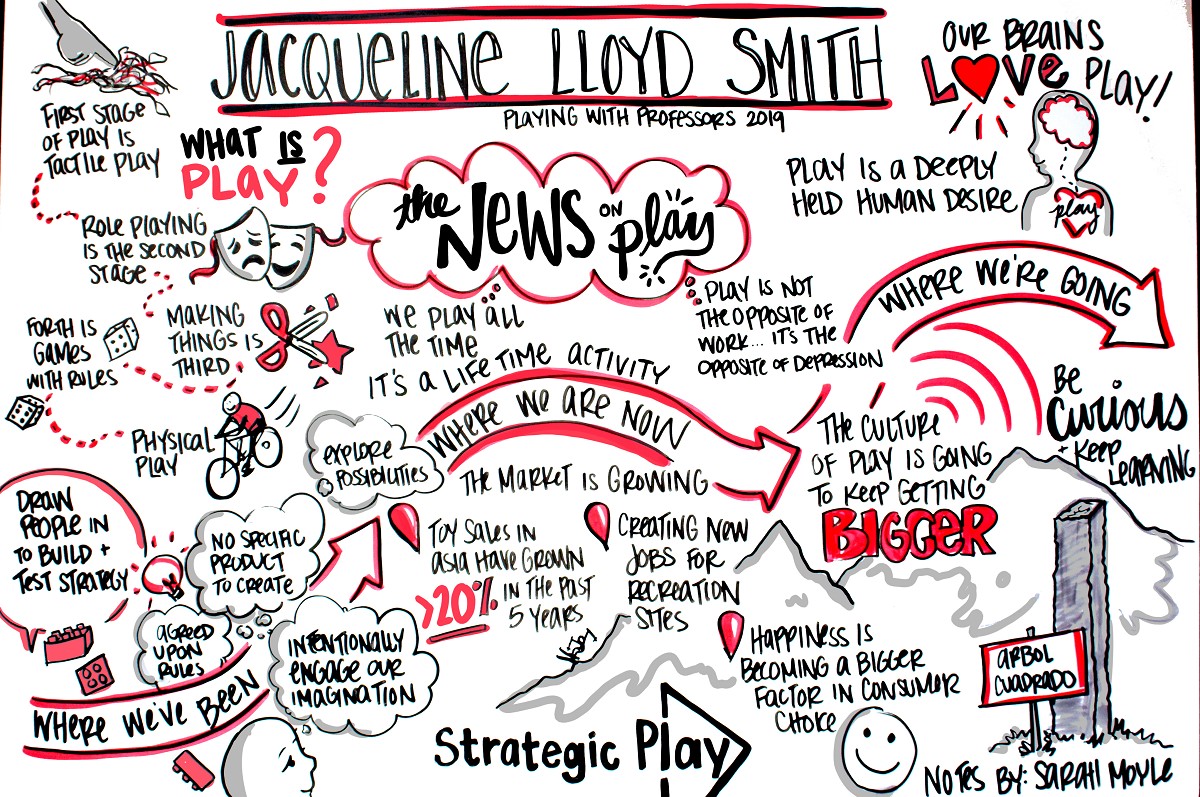 JACQUELINE LLOYD SMITH
PLAYING WITH PROFESSORS 2019
OUR BRAINS
LOVE PLAY!
PLAY IS A DEEPLY
HELD HUMAN DESIRE
play
FIRST STAGE
OF PLAY IS
TACTILE PLAY
WHAT IS
PLAY?
ROLE PLAYING
IS THE SECOND
STAGE
MAKING
THINGS IS
THIRD
FORTH IS
GAMES
WITH RULES
PHYSICAL
PLAY
the NEWS ON play
WE PLAY ALL
THE TIME
IT'S A LIFE TIME ACTIVITY
PLAY IS NOT
THE OPPOSITE OF
WORK... IT'S THE
OPPOSITE OF DEPRESSION
WHERE WE'RE GOING
BE
CURIOUS
+ KEEP
LEARNING
THE CULTURE
OF PLAY IS GOING
TO KEEP GETTING
BIGGER
WHERE WE ARE NOW
THE MARKET IS GROWING
TOY SALES IN
ASIA HAVE GROWN
>20% IN THE PAST
5 YEARS
CREATING NEW
JOBS FOR
RECREATION
SITES
HAPPINESS IS
BECOMING A BIGGER
FACTOR IN CONSUMOR
CHOKE
EXPLORE
POSSIBILITIES
NO SPECIFIC
PRODUCT
TO CREATE
DRAW
PEOPLE IN
TO BUILD +
TEST STRATEGY
AGREED
UPON
RULES
INTENTIONALLY
ENGAGE OUR
IMAGINATION
WHERE WE'VE BEEN
Strategic Play
ARBOL
CUADRADO
NOTES BY: SARAH MOYLE